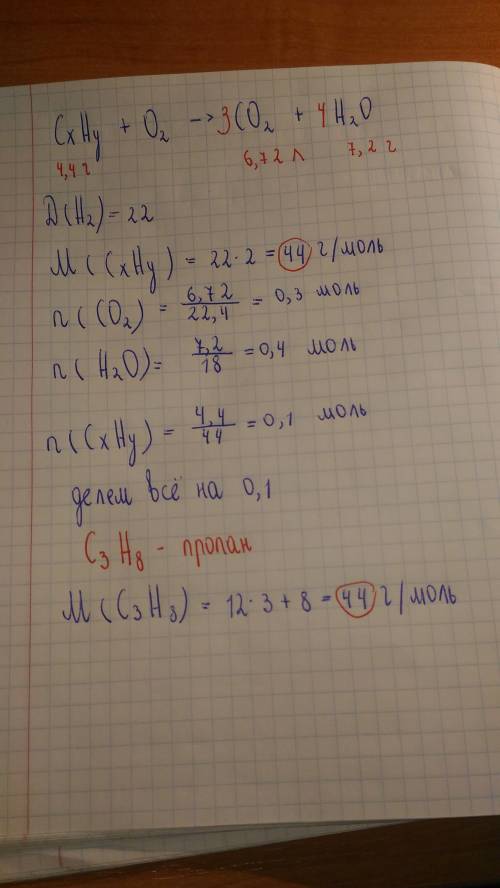 CxHy + O₂ → 3CO₂ + 4H₂O
4,4 г 6,72 л 7,2 г
D(H₂) = 22
M(CxHy) = 22·2 = 44 г/моль
n(CO₂) = 6,72/22,4 = 0,3 моль
n(H₂O) = 7,2/18 = 0,4 моль
n(CxHy) = 4,4/44 = 0,1 моль
делем всё на 0,1
C₃H₈ - пропан
M(C₃H₈) = 12·3 + 8 = 44 г/моль